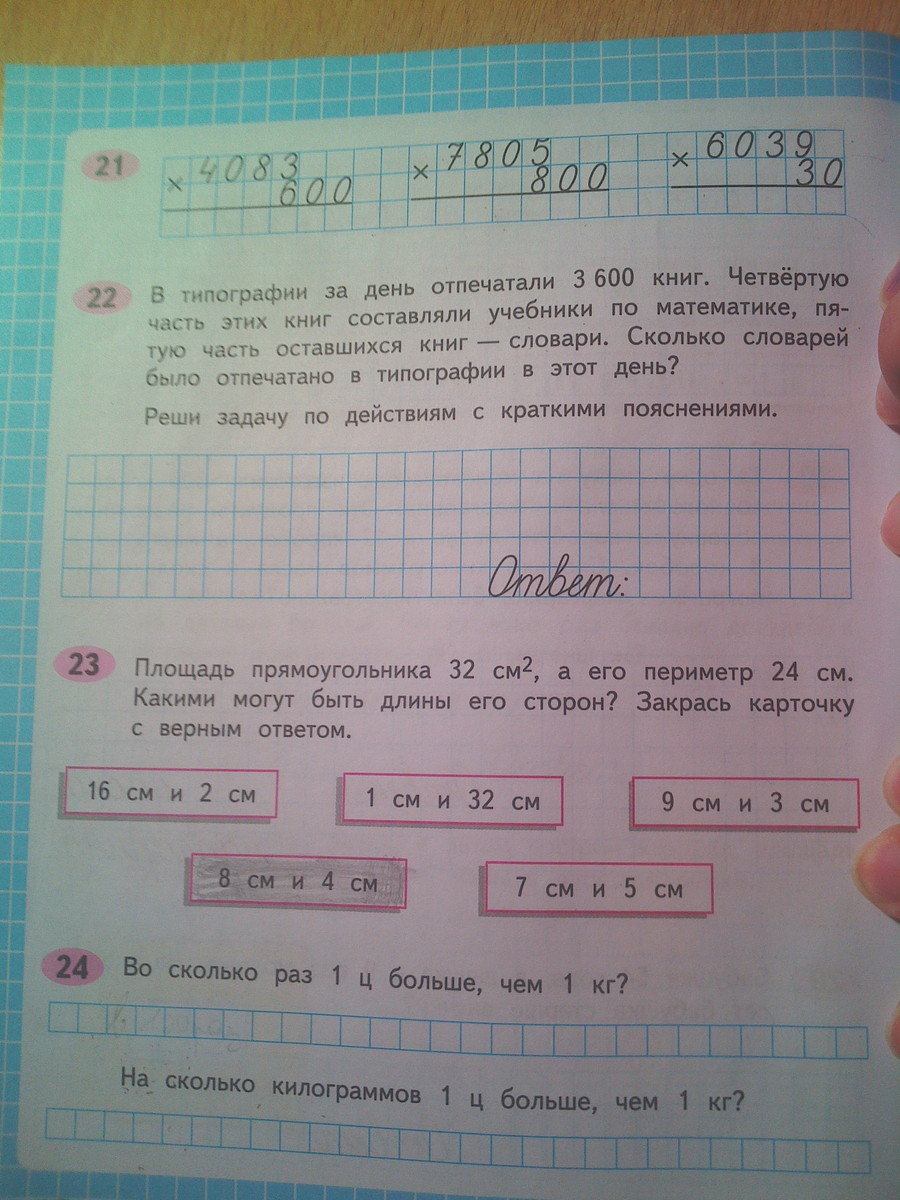 21
× 4083
600
× 7805
800
× 6039
30
22 В типографии за день отпечатали 3 600 книг. Четвёртую
часть этих книг составляли учебники по математике, пя-
тую часть оставшихся книг — словари. Сколько словарей
было отпечатано в типографии в этот день?
Реши задачу по действиям с краткими пояснениями.
Ответ:
23 Площадь прямоугольника 32 см², а его периметр 24 см.
Какими могут быть длины его сторон? Закрась карточку
с верным ответом.
16 см и 2 см
1 см и 32 см
9 см и 3 см
8 см и 4 см
7 см и 5 см
24 Во сколько раз 1 ц больше, чем 1 кг?
На сколько килограммов 1 ц больше, чем 1 кг?